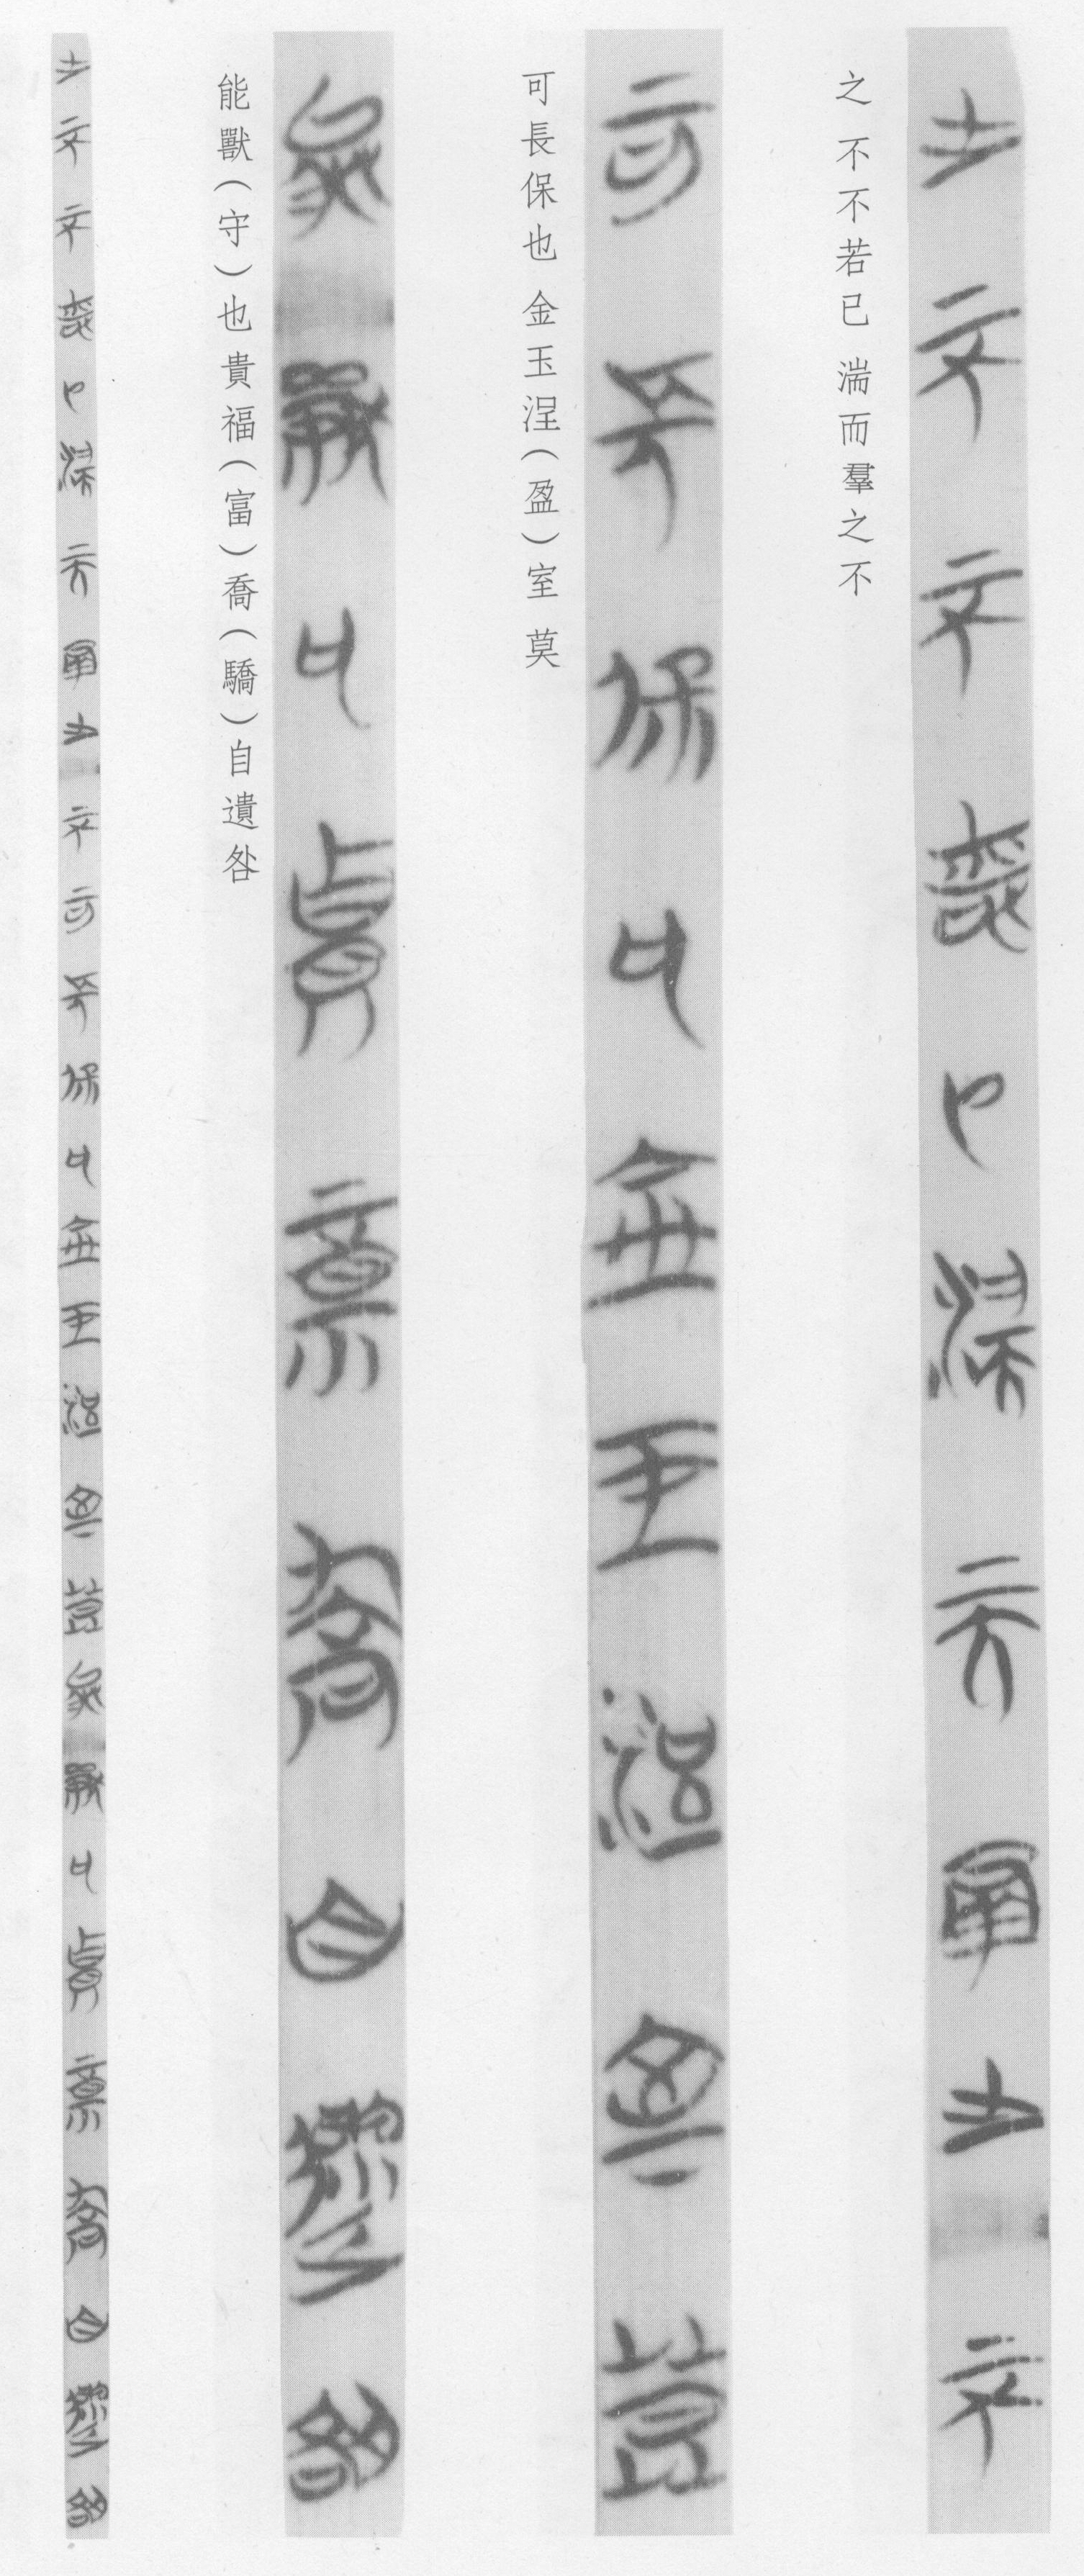 之 不不若已 湍而羣之不
可長保也 金玉浧(盈)室 莫
能獸(守)也 貴福(富)喬(驕)自遺咎